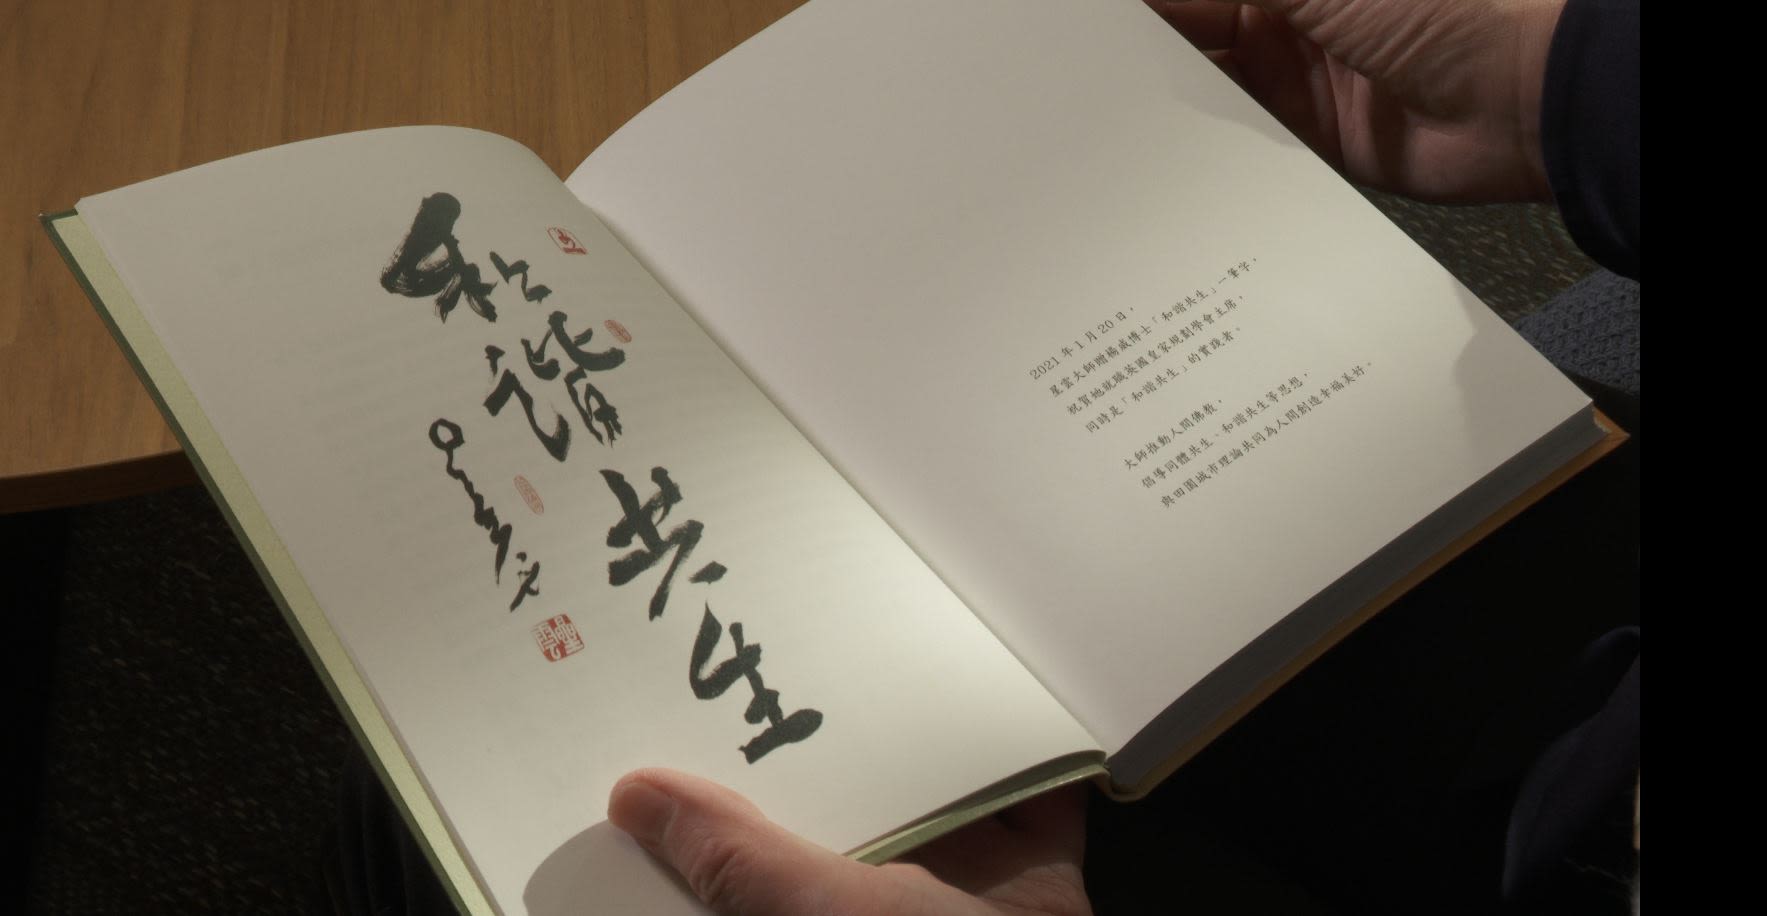 和諧共生
星雲
2021 年 1 月 20 日，
星雲大師贈楊威博士「和諧共生」一筆字，
祝賀她就職英國皇家規劃學會主席，
同時是「和諧共生」的實踐者。
大師推動人間佛教，
倡導同體共生、和諧共生等思想，
與田園城市理論共同為人間創造幸福美好。